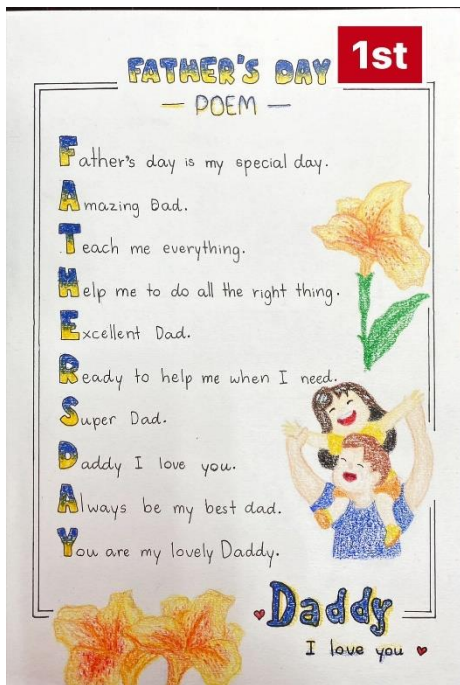 1st
FATHER'S DAY
— POEM —
Father's day is my special day.
Amazing Dad.
Teach me everything.
Help me to do all the right thing.
Excellent Dad.
Ready to help me when I need.
Super Dad.
Daddy I love you.
Always be my best dad.
You are my lovely Daddy.
Daddy
I love you